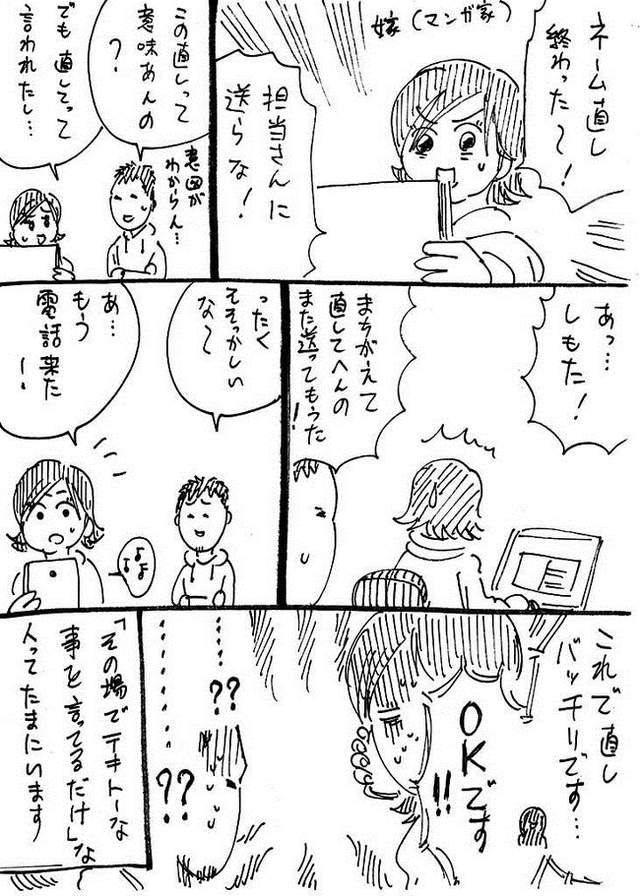 ネーム直し
終わった〜!
嫁(マンガ家)
担当さんに
送らな!
この直しって
意味あんの
?
意図が
わからん…
でも直してって
言われたし…
あっ…
しもた!
まちがえて
直してへんの
また送ってもうた!
ったく
そそっかしい
な〜
あ…
もう
電話来た
!
♪♪
これで直し
バッチリです…
OKです
!!
……??
……??
「その場でテキトーな
事を言ってるだけ」な
人ってたまにいます